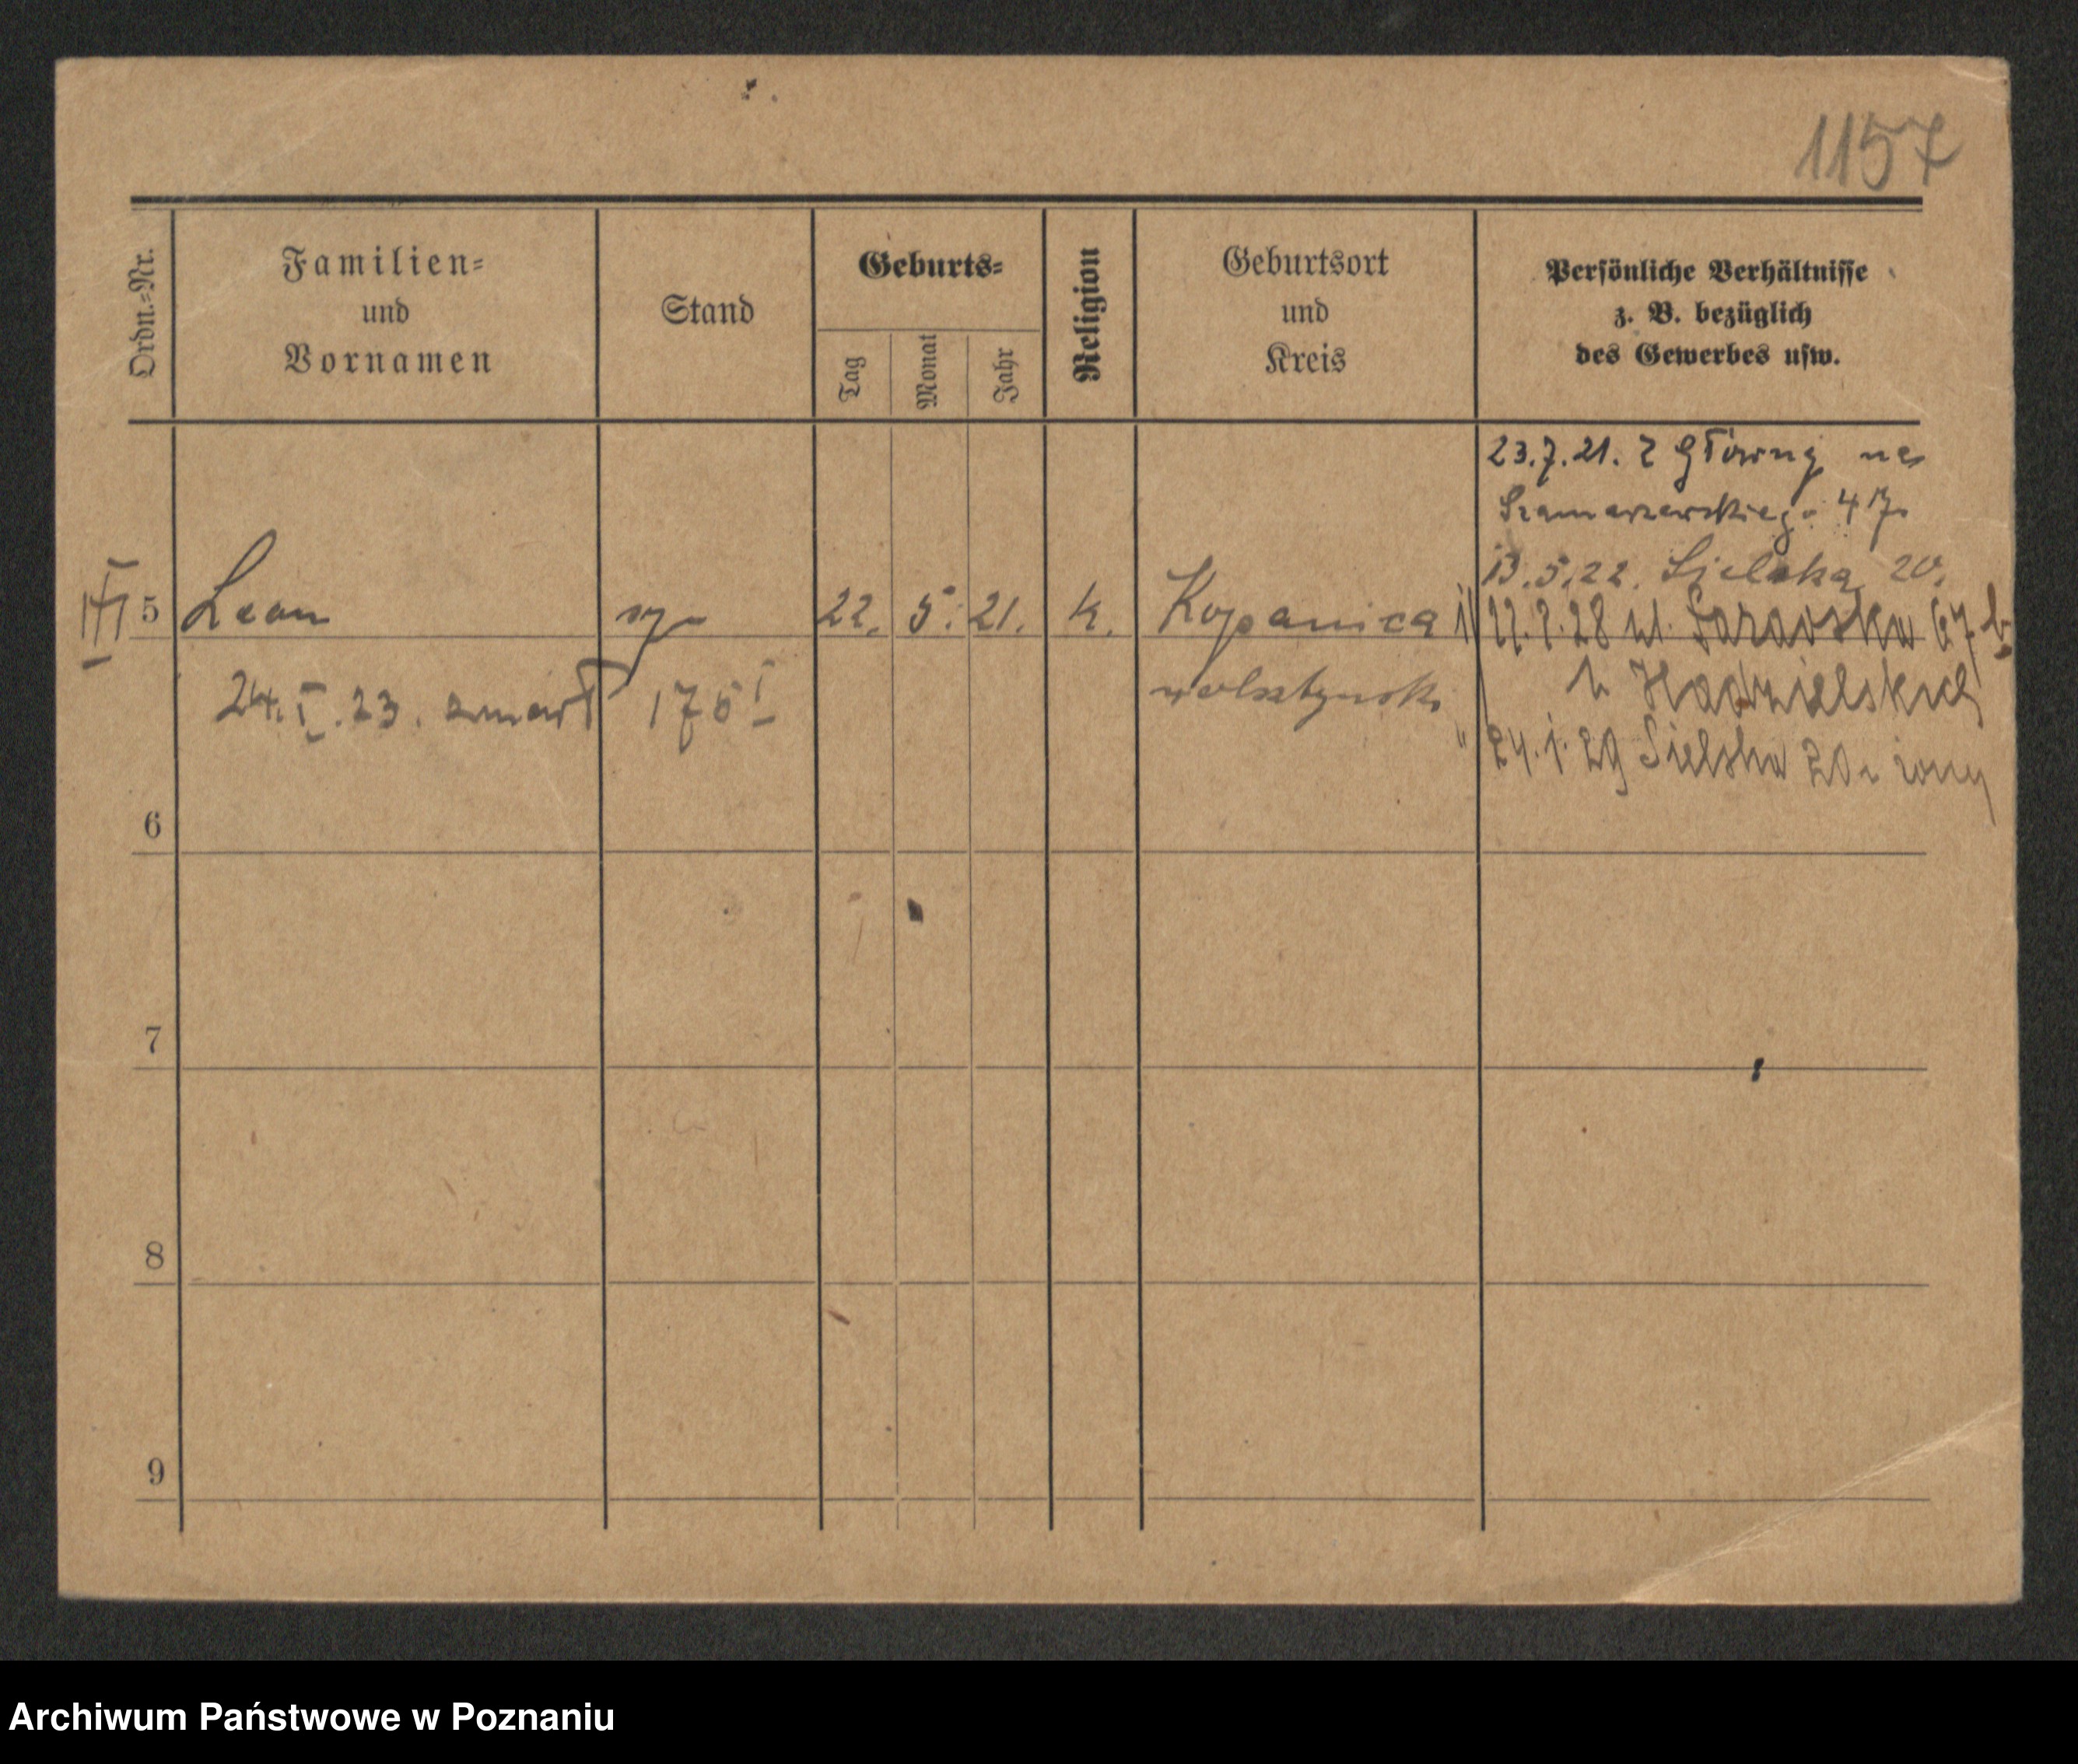 1157
Ordn.-Nr.
Familien-
und
Vornamen
Stand
Geburts-
Tag
Monat
Jahr
Religion
Geburtsort
und
Kreis
Persönliche Verhältnisse
z. B. bezüglich
des Gewerbes usw.
23.7.21. z Główny na
Szamarzewskiego 47
13.5.22. Sielska 20.
III 5 Leon syn 22. 5. 21. k. Kopanica
28 ul.
24. I. 23. zmarł wolsztyński
24.1.29 Sielska 20 z żony
6
7
8
9
Archiwum Państwowe w Poznaniu